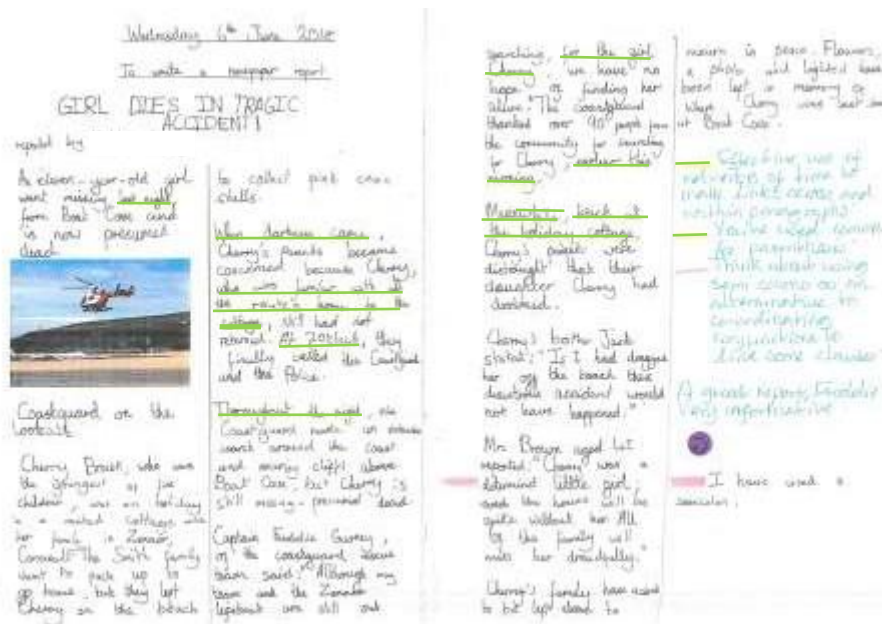 Wednesday 6th June 2018
To write a newspaper report
GIRL DIES IN TRAGIC
ACCIDENT!
reported by
An eleven-year-old girl
went missing last night,
from Boat Cove and
is now presumed
dead.
Coastguard on the
lookout
Cherry Brown, who was
the youngest of five
children, was on holiday
in a rented cottage with
her family in Zennor,
Cornwall. The Smith family
went to pack up to
go home, but they left
Cherry on the beach
to collect pink
shells.
When darkness came,
Cherry's parents became
concerned because Cherry,
who was familiar with all
the routes home to the
cottage, still had not
returned. At 20 o'clock, they
finally called the Coastguard
and the Police.
Throughout the night, the
Coastguard made an
search around the coast
and cliffs above
Boat Cove, but Cherry is
still missing - presumed dead.
Captain Freddie Gurney,
of the coastguard rescue
team said, "Although my
team and the Zennor
lifeboat are still out
searching, for the girl
Cherry, we have no
hope of finding her
alive." The coastguard
thanked over 90 people from
the community for searching
for Cherry, earlier this
morning.
Meanwhile, back at
the holiday cottage,
Cherry's parents were
distraught that their
daughter Cherry had
drowned.
Cherry's brother Jack
stated: "If I had dragged
her off the beach this
accident would
not have happened."
Mrs Brown aged 41
reported "Cherry was a
little girl,
and the house will be
quite without her All
of the family will
miss her dreadfully."
Cherry's family have asked
to be left alone to
mourn in peace. Flowers,
a photo and lighted have
been left in memory of
where Cherry was last
at Boat Cove.
Effective use of
adverbials of time to
make links across and
within paragraphs
You've used commas
for parenthesis
Think about using
semi colons as an
alternative to
co-ordinating
conjunctions to
some clauses
A great report,
Very informative
I have used a
semicolon.